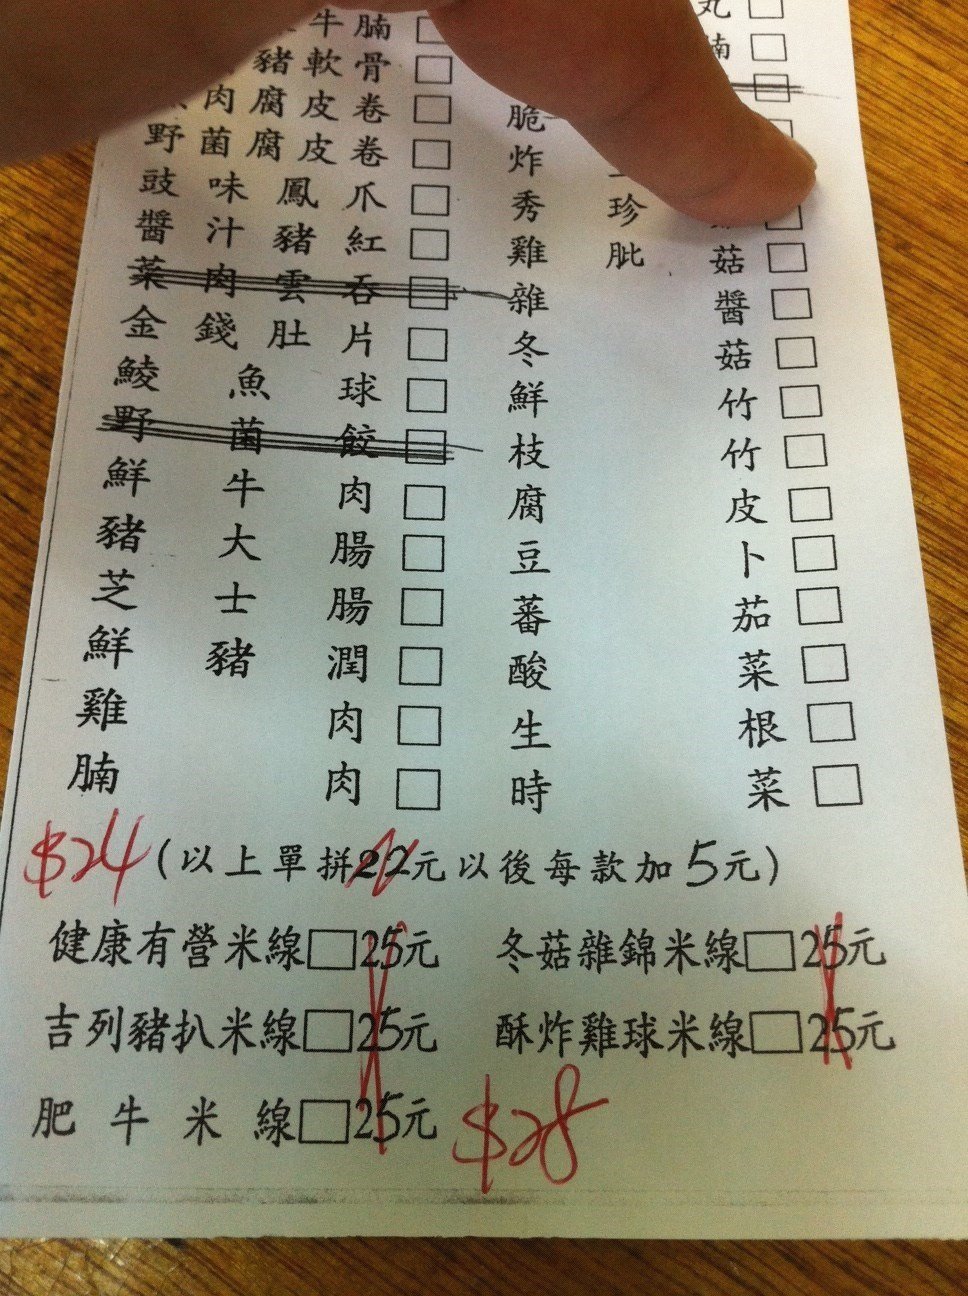 牛腩□
豬軟骨□
肉腐皮卷□
野菌腐皮卷□
豉味鳳爪□
醬汁豬紅□
菜肉雲吞□
金錢肚片□
鯪魚球□
野菌餃□
鮮牛肉□
豬大腸□
芝士腸□
鮮豬潤□
雞肉□
腩肉□
丸□
腩□
脆
炸
秀珍菇□
雞肶菇□
雜醬□
冬菇□
鮮竹□
枝竹□
腐皮□
豆卜□
蕃茄□
酸菜□
生根□
時菜□
$24(以上單拼22元以後每款加5元)
健康有營米線□25元 冬菇雜錦米線□25元
吉列豬扒米線□25元 酥炸雞球米線□25元
肥牛米線□25元 $28